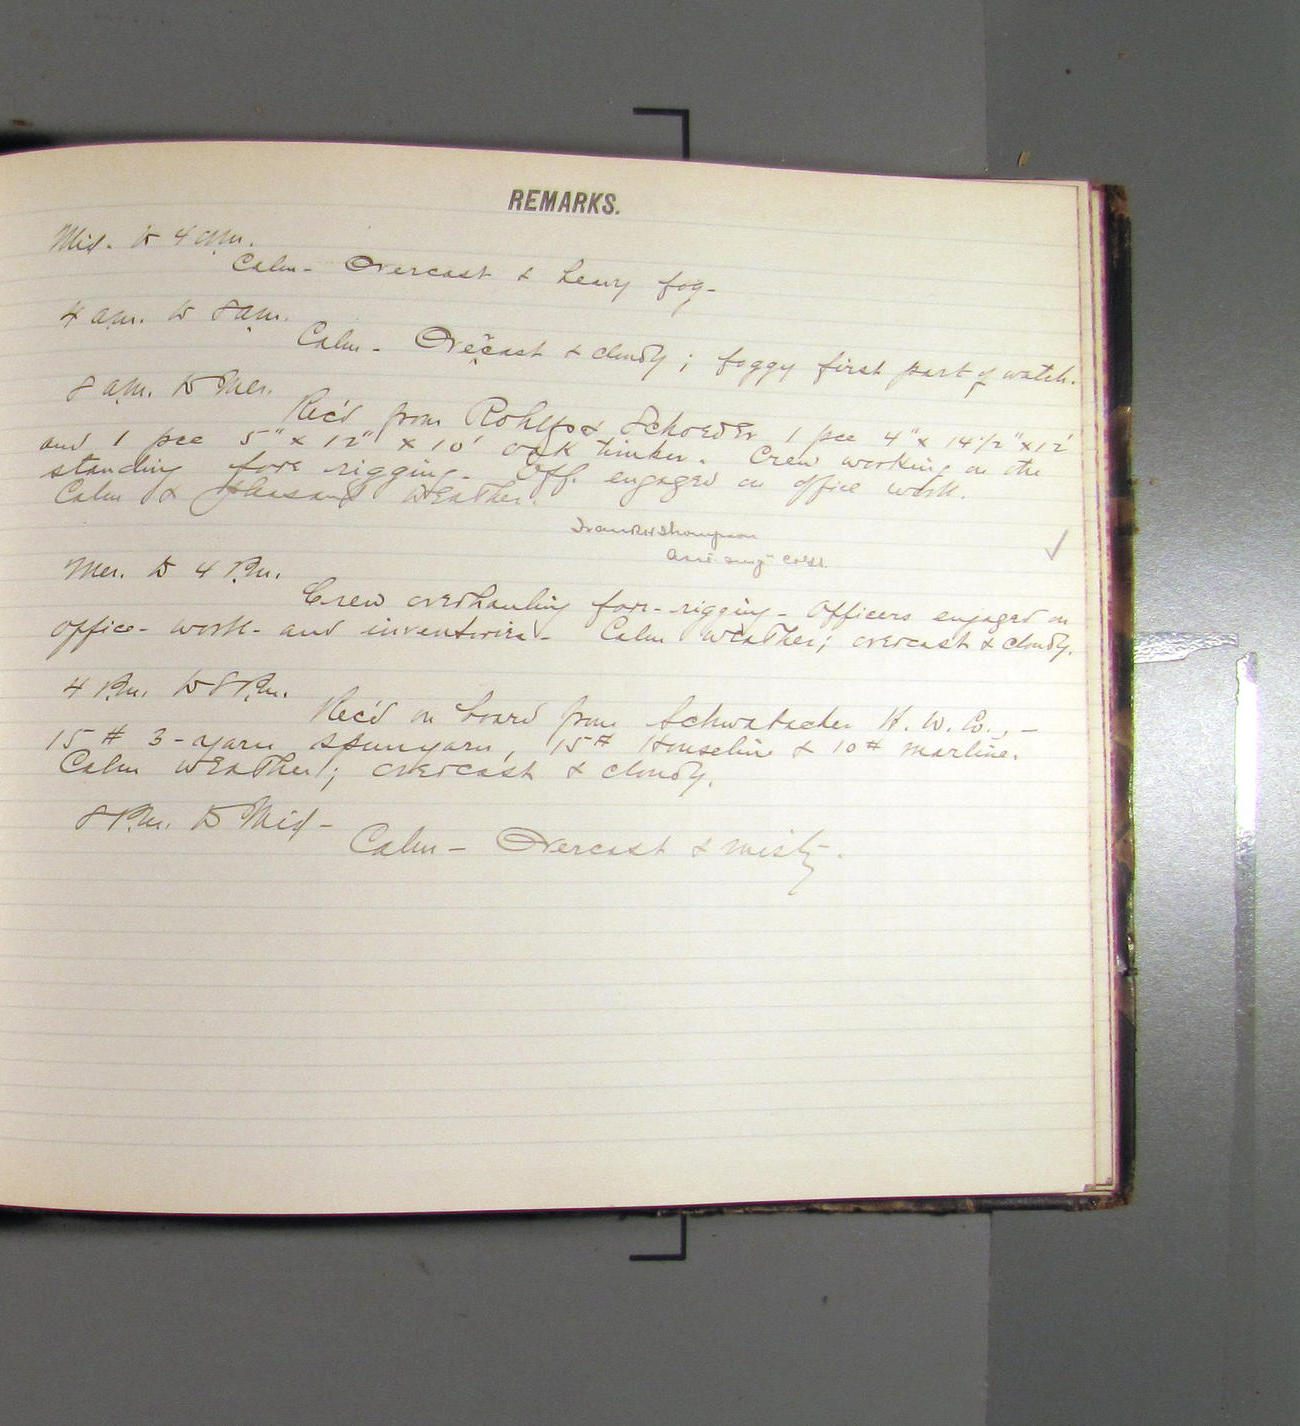 REMARKS.
Mid. to 4 a.m.
Calm - Overcast & heavy fog -
4 a.m. to 8 a.m.
Calm - Overcast & cloudy ; foggy first part of watch.
8 a.m. to Mer.
Rec'd from Rohlfs & Schoeder 1 pce 4" x 14 1/2" x 12'
and 1 pce 5" x 12" x 10' oak timber. Crew working on the
standing fore rigging. Off. engaged on office work.
Calm & pleasant weather.
Thompson
Mer. to 4 P.m.
Crew overhauling fore-rigging - Officers engaged on
office-work - and inventories - Calm weather; overcast & cloudy.
4 P.m. to 8 P.m.
Rec'd on board from Schwabacher H. W. Co., -
15 # 3-yarn spunyarn, 15 # Houseline & 10 # marline.
Calm weather; overcast & cloudy.
8 P.m. to Mid -
Calm - Overcast & misty.